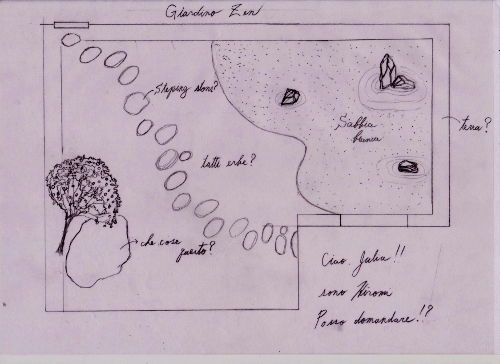 Giardino Zen
Steping stone?
Sabbia
bianca
terra?
tutte erbe?
che cosa
questo?
Ciao, Julia!!
sono Hiromi
Posso domandare!?